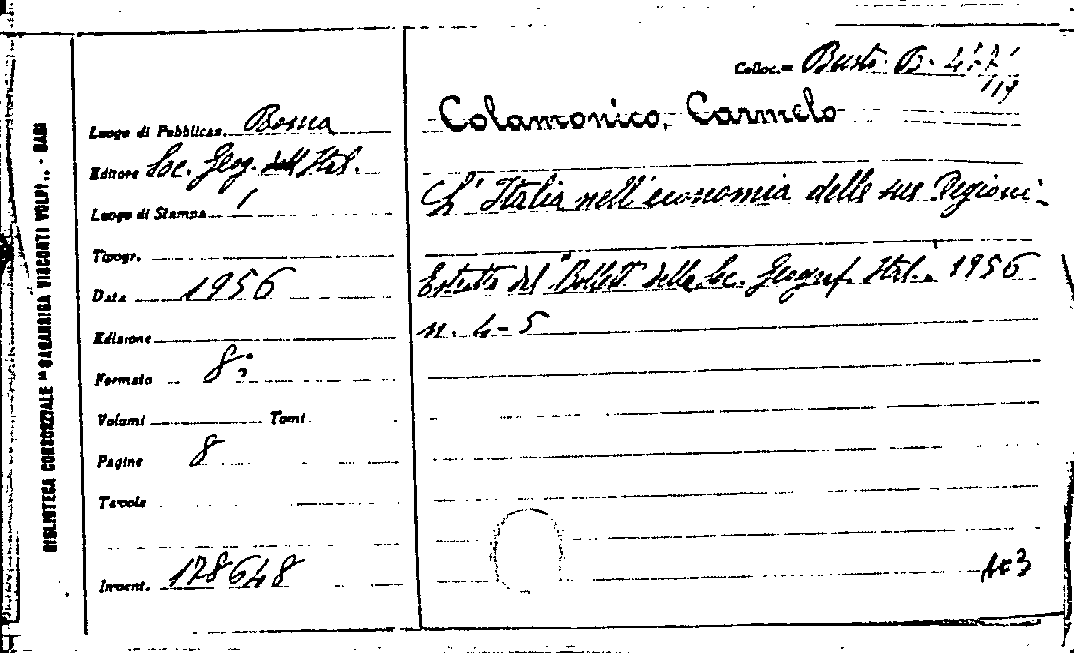 BIBLIOTECA CONSORZIALE "SAGARRIGA VISCONTI VOLPI" - BARI
Colloc.= Busta B- 477/
117
Luogo di Pubblicaz. Roma
Editore Soc. Geog. dell Ital.
Luogo di Stampa /
Tipogr.
Data 1956
Edizione
Formato 8:
Volumi Tomi
Pagine 8
Tavole
Invent. 178648
Colamonico, Carmelo
L'Italia nell'economia delle sue Regioni-
Estratto dal "Bollett. della Soc. Geograf. Ital.. 1956
n. 4-5